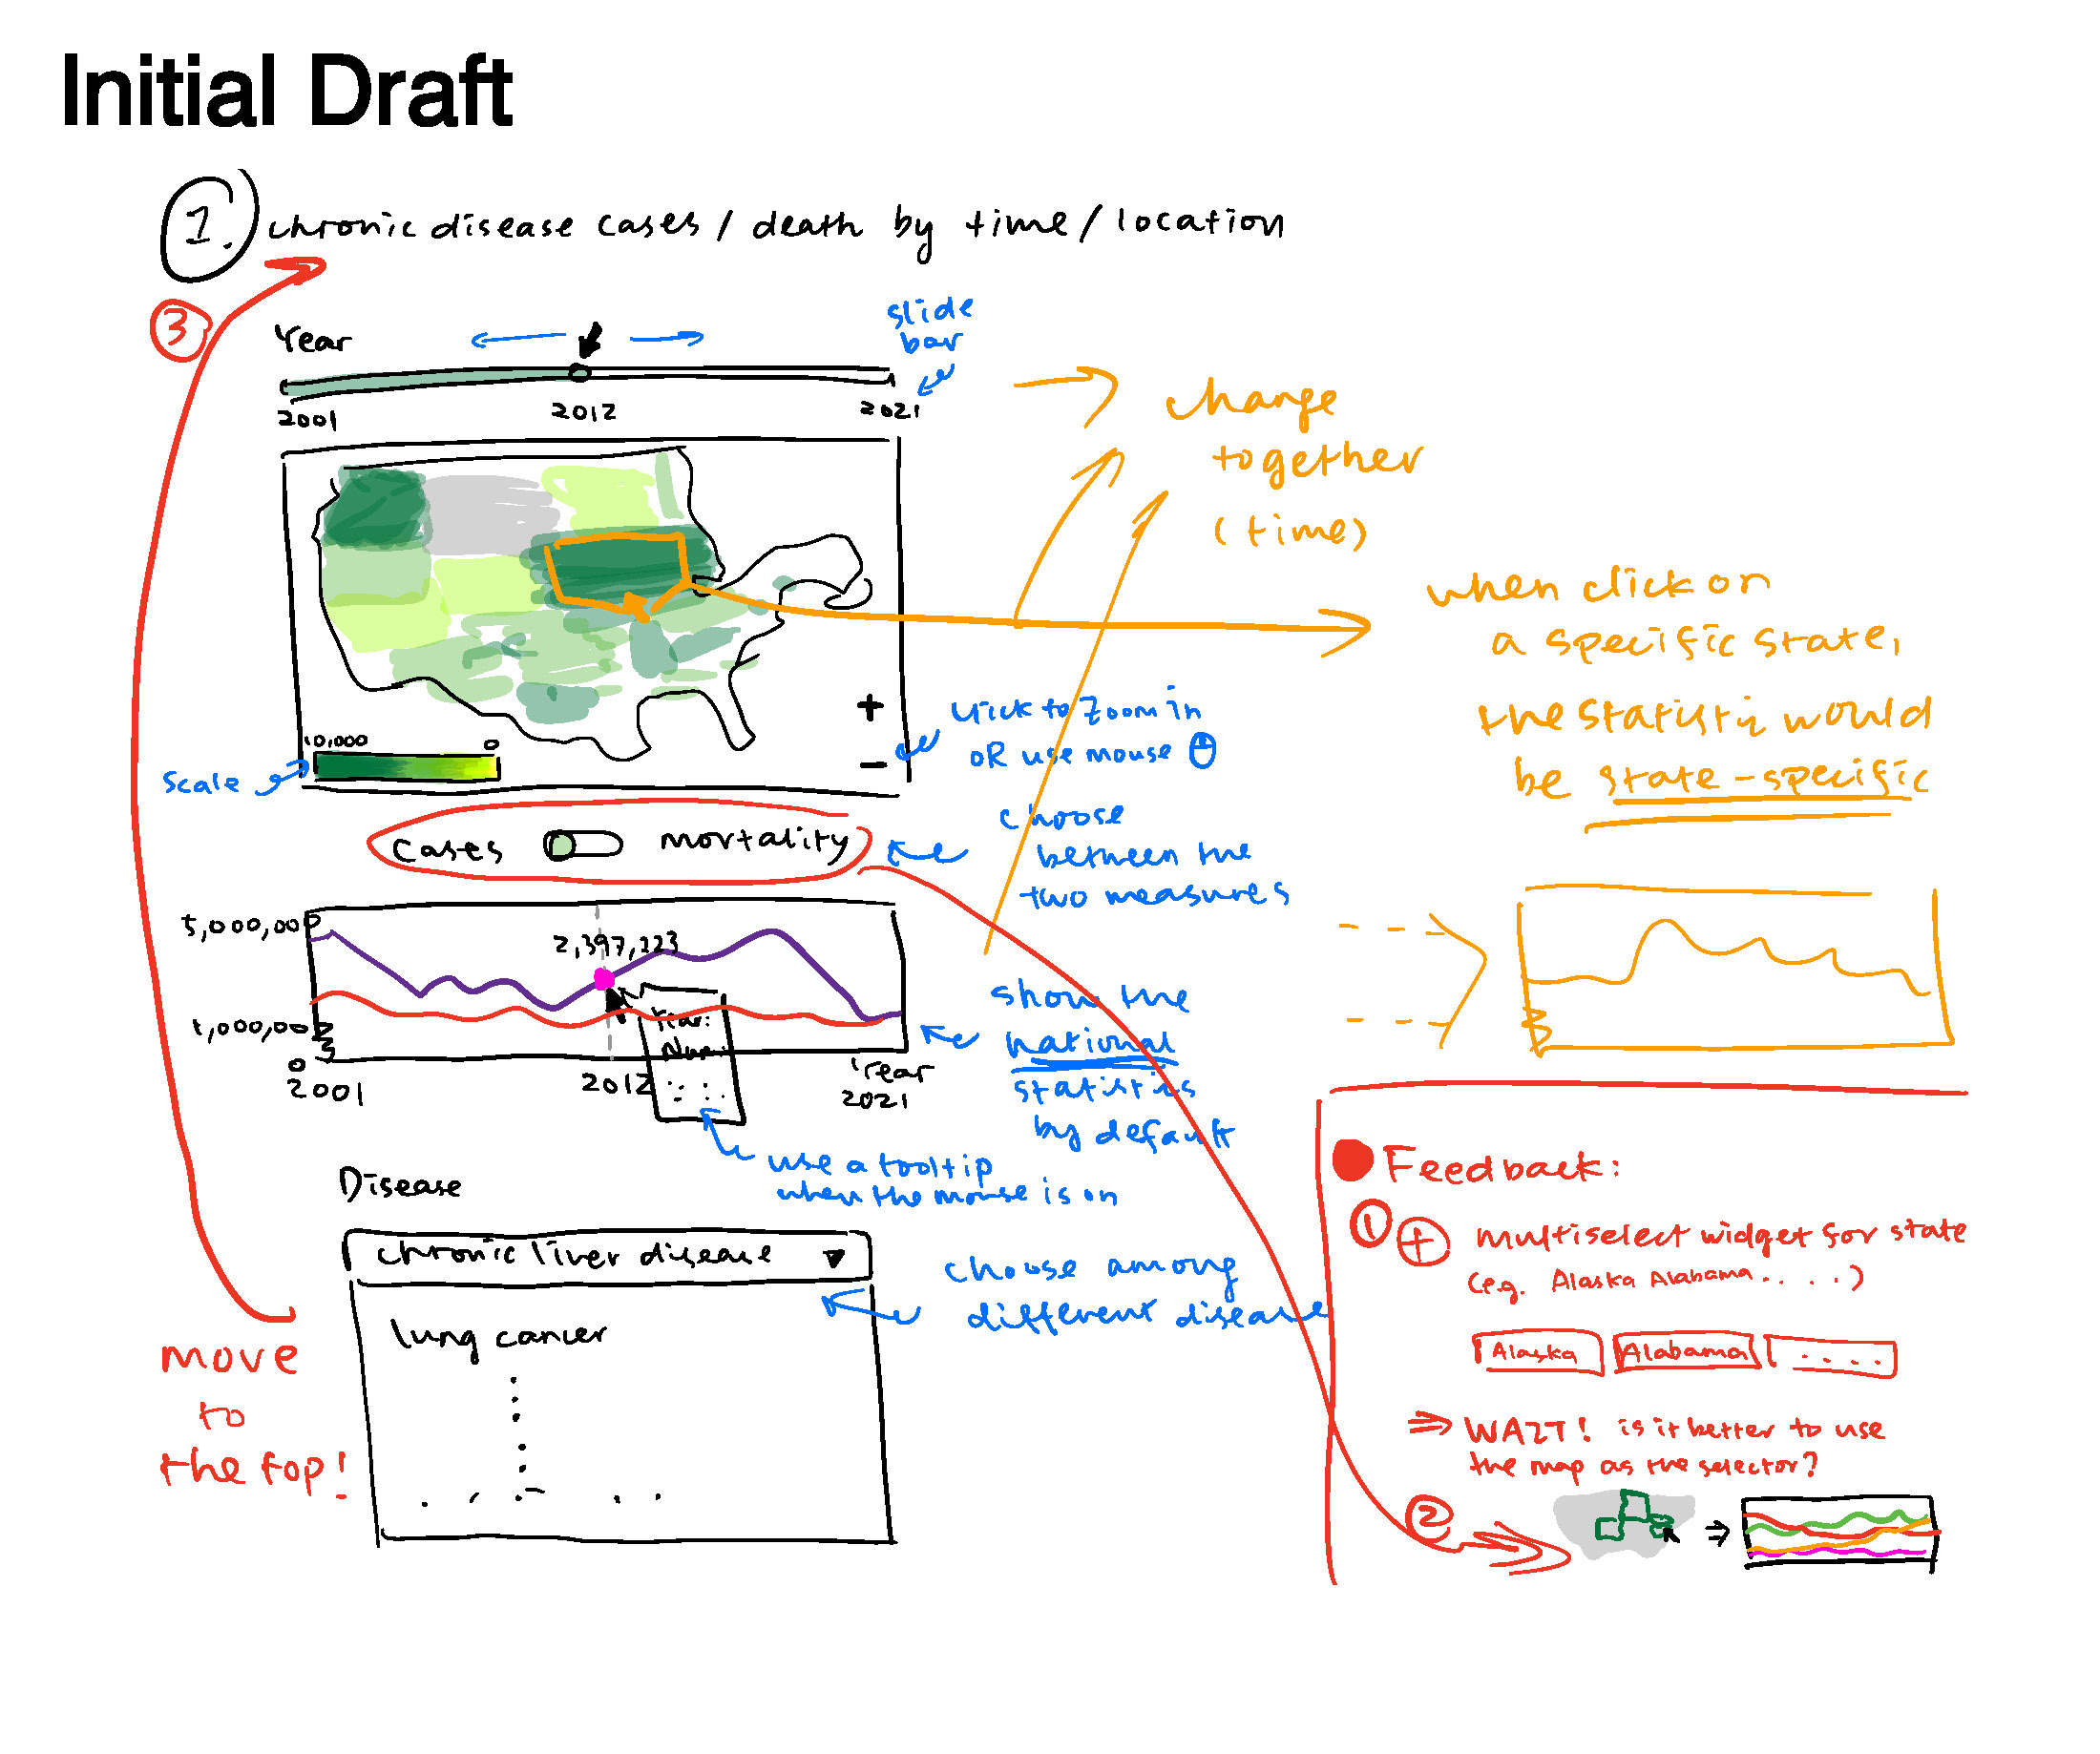 Initial Draft
1. chronic disease cases / death by time / location
3
Year
slide
bar
2001
2012
2021
change
together
(time)
when click on
a specific state,
the statistic would
be state-specific
+
-
click to zoom in
OR use mouse
10,000
0
scale
cases
mortality
choose
between the
two measures
5,000,000
2,397,223
1,000,000
0
2001
2012
Year
2021
Year:
Num:
show the
national
statistics
by default
use a tooltip
when the mouse is on
Disease
chronic liver disease
lung cancer
choose among
different disease
move
to
the top!
Feedback:
1 + multiselect widget for state
(e.g. Alaska Alabama.....)
Alaska
Alabama
....
⇒ WAIT! is it better to use
the map as the selector?
2